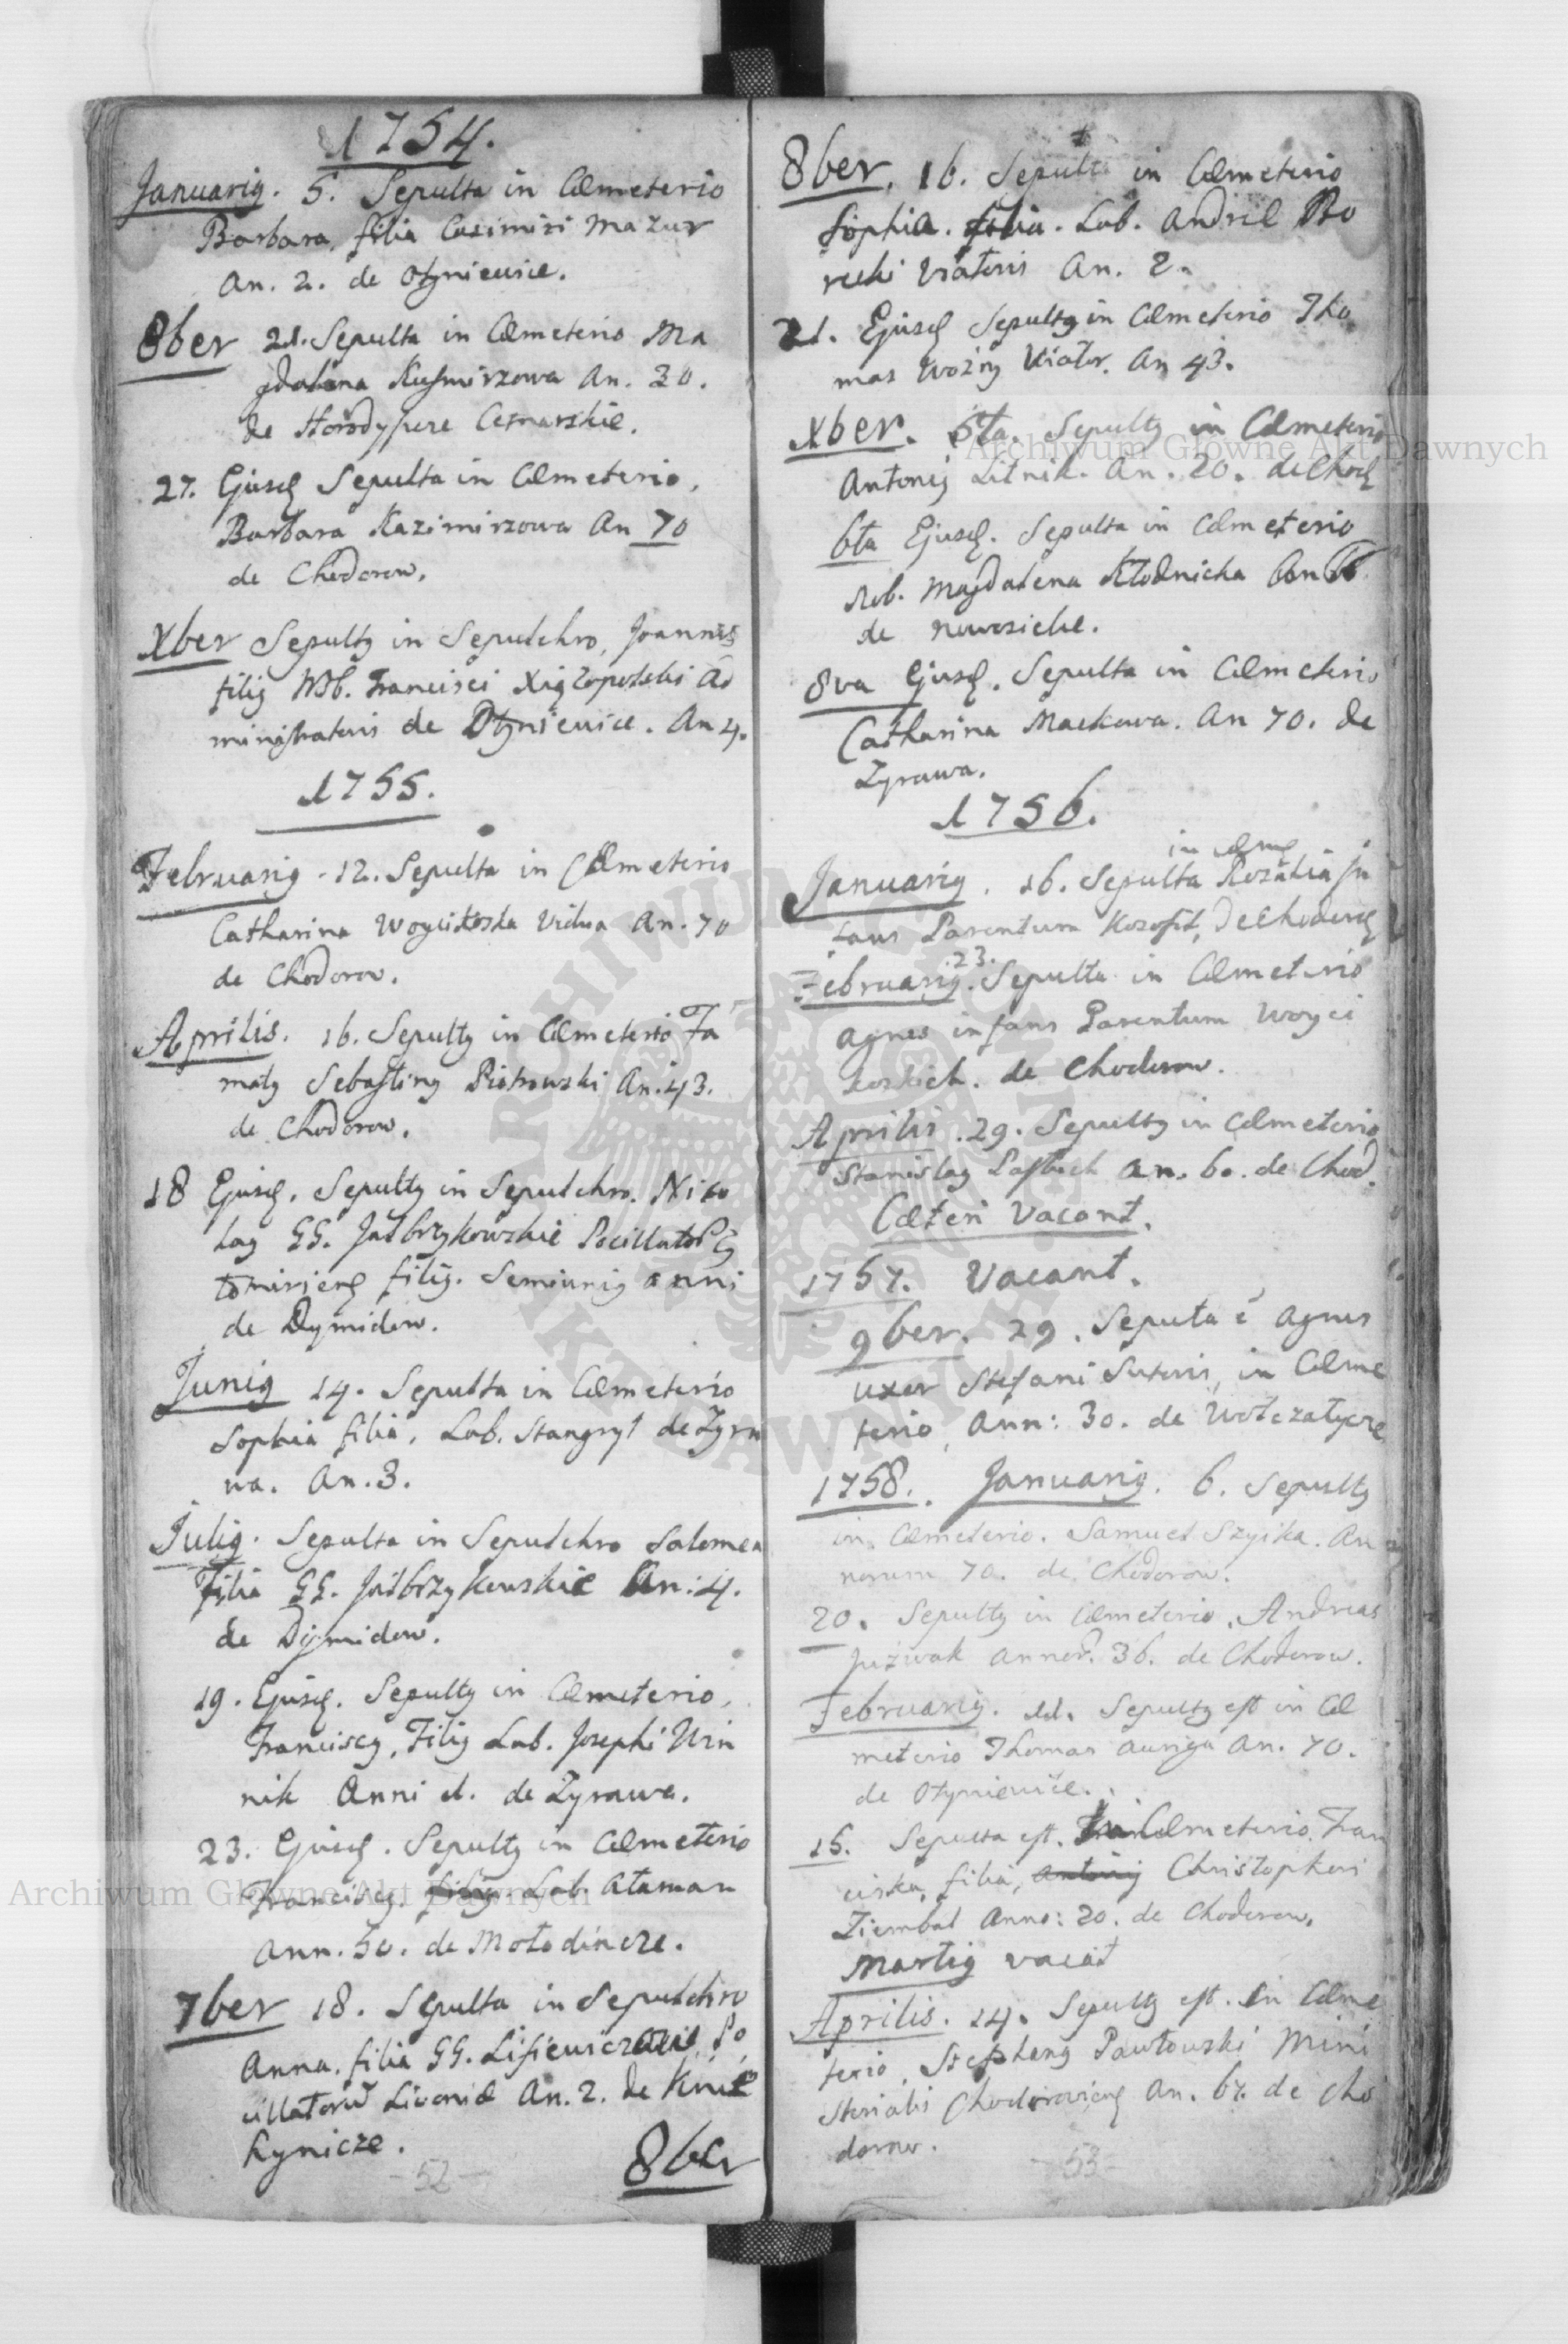 1754.
Januarig. 5. Sepulta in Cœmeterio
Barbara, filia Casimiri Mazur
An. 2. de Otynievice.
8ber 21. Sepulta in Cœmeterio Ma
gdalena Kusmirzowa An. 30.
de Horodyszcze Cetnarskie.
27. Ejusd Sepulta in Cœmeterio,
Barbara Kazimirzowa An 70
de Chodorow.
Xber Sepultg in Sepulchro, Joannis
filig Francisci Ad
ministratoris de Otynievice. An 4.
1755.
Februarig. 12. Sepulta in Cœmeterio
Catharina Woycikoska Vidua An. 70
de Chodorow.
Aprilis. 16. Sepultg in Cœmeterio Fa
matg Sebasting Piotrowski An. 43.
de Chodorow.
18 Ejusd. Sepultg in Sepulchro. Nico
lag GG. Jastrzykowskie
filig. Semiunig anni
de Dymidow.
Junig 14. Sepulta in Cœmeterio
Sophia filia, Lab. Stangryt de Zyra
wa. An. 3.
Julig. Sepulta in Sepulchro Salomea
Filia GG. Jastrzykowskie An: 4.
de Dymidow.
19. Ejusd. Sepultg in Cœmeterio,
Franciscg, Filig Lab. Josephi Win
nik Anni 1. de Zyrawa.
23. Ejusd. Sepultg in Cœmeterio
Franciscg. filig Lab. Ataman
Ann. 50. de Mołodincze.
7ber 18. Sepulta in Sepulchro
Anna. filia GG. Po
cillatorū Livoniæ An. 2. de Knie
hynicze.
8ber
-52-
8ber. 16. Sepulta in Cœmeterio
Sophia. filia. Lab. Andreæ Bo
recki Viatoris An. 2.
21. Ejusd Sepultg in Cœmeterio Tho
mas Woźny Viator. An 43.
Xber. 5ta. Sepultg in Cœmeterio
Antonig Litnik. An. 20. de Chod
6ta Ejusd. Sepulta in Cœmeterio
Nob. Magdalena Kłodnicka An
de
8va Ejusd. Sepulta in Cœmeterio
Catharina Mackowa. An 70. de
Zyrawa.
1756.
in Cœme
Januarig. 16. Sepulta Rozalia In
fans Parentum de Chodorow
.23.
Februarig. Sepulta in Cœmeterio
Agnes infans Parentum Woyci
koskich. de Chodorow.
Aprilis. 29. Sepultg in Cœmeterio
Stanislag An. 60. de Chod.
Cæteri Vacant.
1757. Vacant.
9ber. 29. Sepulta ē Agnes
uxor Stefani Sutoris, in Cœme
terio, Ann: 30. de Wołczatycze
1758. Januarig. 6. Sepultg
in Cœmeterio. Samuel Szyika. An
norum 70. de Chodorow.
20. Sepultg in Cœmeterio, Andreas
Juzwak Annor. 36. de Chodorow.
Februarig. 11. Sepultg est in Cœ
meterio Thomas auriga An. 70.
de Otynievice.
15. Sepulta est. in Cœmeterio. Fran
ciska, filia, Antonig Christophori
Ziembal Anno: 20. de Chodorow.
Martig vacat
Aprilis. 14. Sepultg est. in Cœme
terio, Stephang Pawłowski Mini
sterialis An. 67. de Cho
dorow.
-53-
Archiwum Główne Akt Dawnych
Archiwum Główne Akt Dawnych
ARCHIWUM GŁÓWNE AKT DAWNYCH